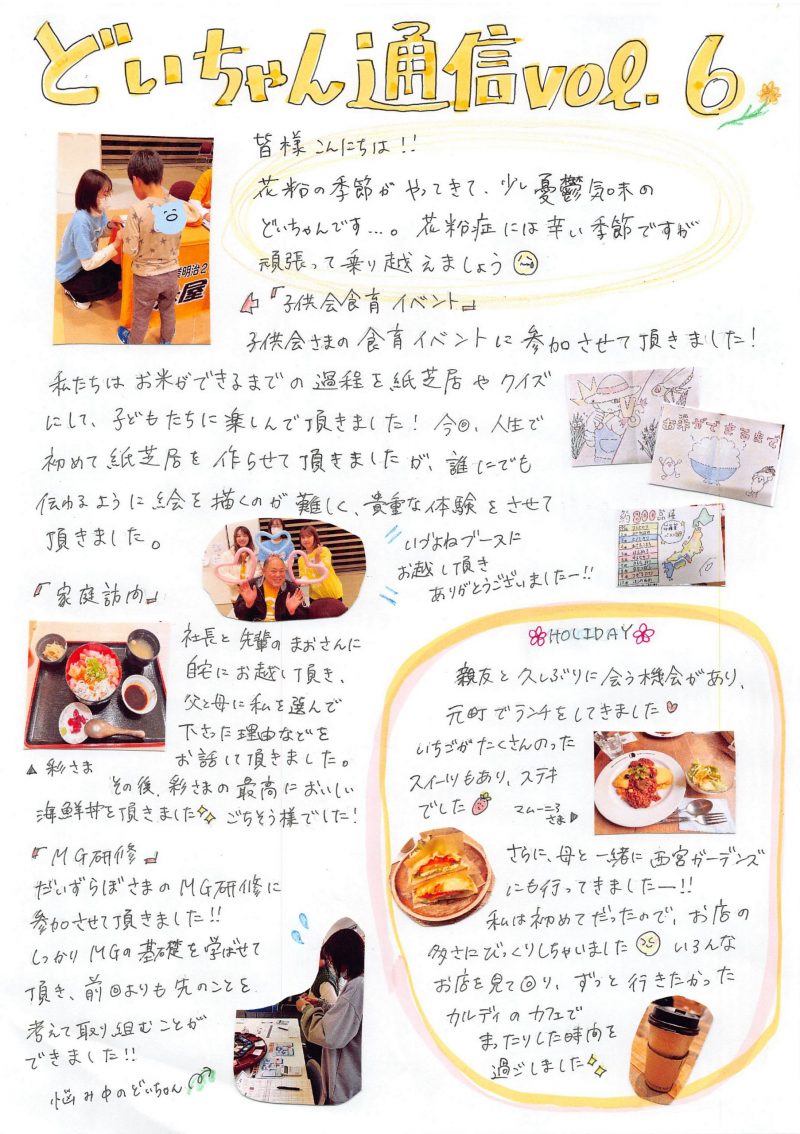 どいちゃん通信vol.6
皆様こんにちは!!
花粉の季節がやってきて、少し憂鬱気味の
どいちゃんです…。花粉症には辛い季節ですが
頑張って乗り越えましょう
『子供会食育イベント』
子供会さまの食育イベントに参加させて頂きました!
私たちはお米ができるまでの過程を紙芝居やクイズ
にして、子どもたちに楽しんで頂きました!今回、人生で
初めて紙芝居を作らせて頂きましたが、誰にでも
伝わるように絵を描くのが難しく、貴重な体験をさせて
頂きました。
明治2
屋
お米ができるまで
約800品種
いづよねブースに
お越し頂き
ありがとうございましたー!!
『家庭訪問』
社長と先輩のまおさんに
自宅にお越し頂き、
父と母に私を選んで
下さった理由などを
お話して頂きました。
▲彩さま
その後、彩さまの最高においしい
海鮮丼を頂きました ごちそう様でした!
『MG研修』
だいずらぼさまのMG研修に
参加させて頂きました!!
しっかりMGの基礎を学ばせて
頂き、前回よりも先のことを
考えて取り組むことが
できました!!
悩み中のどいちゃん
HOLIDAY
親友と久しぶりに会う機会があり、
元町でランチをしてきました
いちごがたくさんのった
スイーツもあり、ステキ
でした
マムーニア
さま
さらに、母と一緒に西宮ガーデンズ
にも行ってきましたー!!
私は初めてだったので、お店の
多さにびっくりしちゃいました いろんな
お店を見て回り、ずっと行きたかった
カルディのカフェで
まったりした時間を
過ごしました